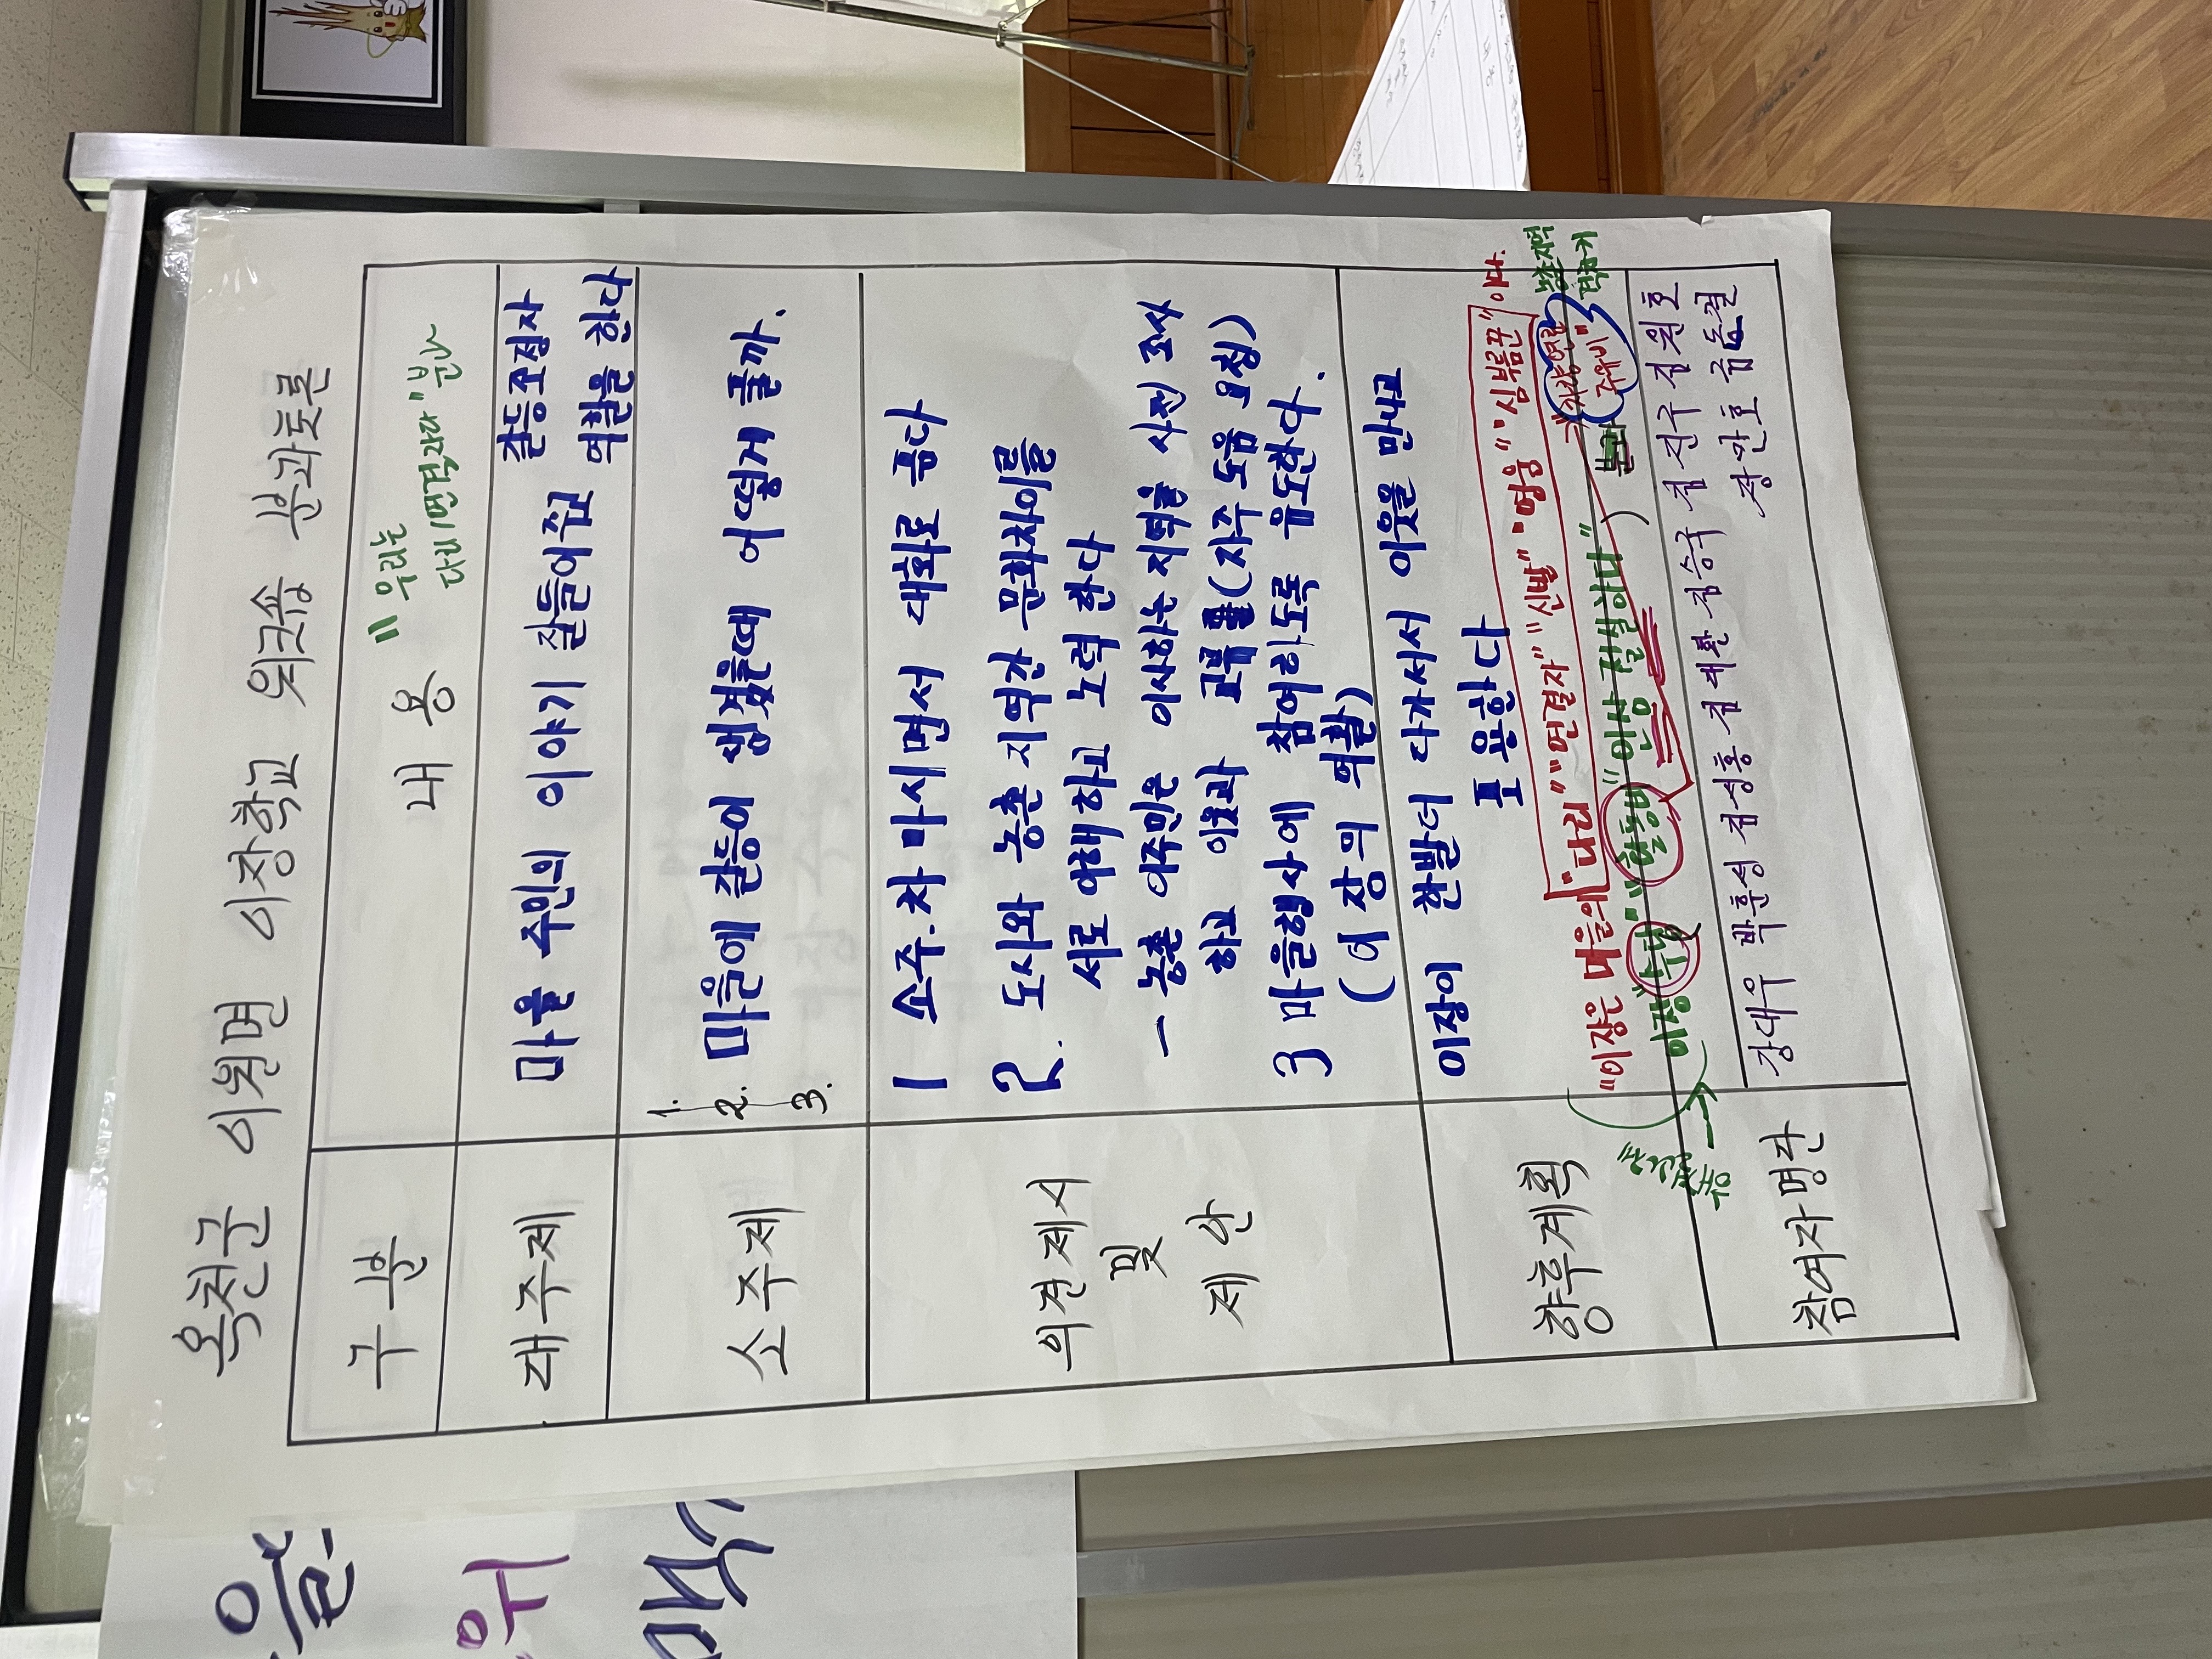 옥천군 이원면 이장학교 워크숍 분과토론
구분
내용
"우리는
다비/면역과다"분과
대주제
마을 주민의 이야기 잘들어주고
갈등조정자
역할을 한다
소주제
1.
2. 마을에 갈등이 생겼을때 어떻게 풀까.
3.
의견제시
및
제안
1 소주.차 마시면서 대화로 품다
2. 도시와 농촌 지역간 문화차이를
서로 이해하고 노력 한다
- 농촌 이주민은 이사하는 지역을 사전 조사
하고 이웃과 교류를(자주 도움 요청)
3 마을행사에 참여하도록 유도한다.
(이장의 역활)
향후계획
이장이 한발더 다가서서 이웃을 만나고
포용한다
"이장은 마을의 "다리" "연결자" "신발" "영웅" "심부름꾼" 이다.
이장"수당" "활동비" "인상 절실하다")
차량연료
주유비"
참여자명단
강대우 박훈성 김성홍 김대환 김승국 김진구 김원호
장만호 금동결